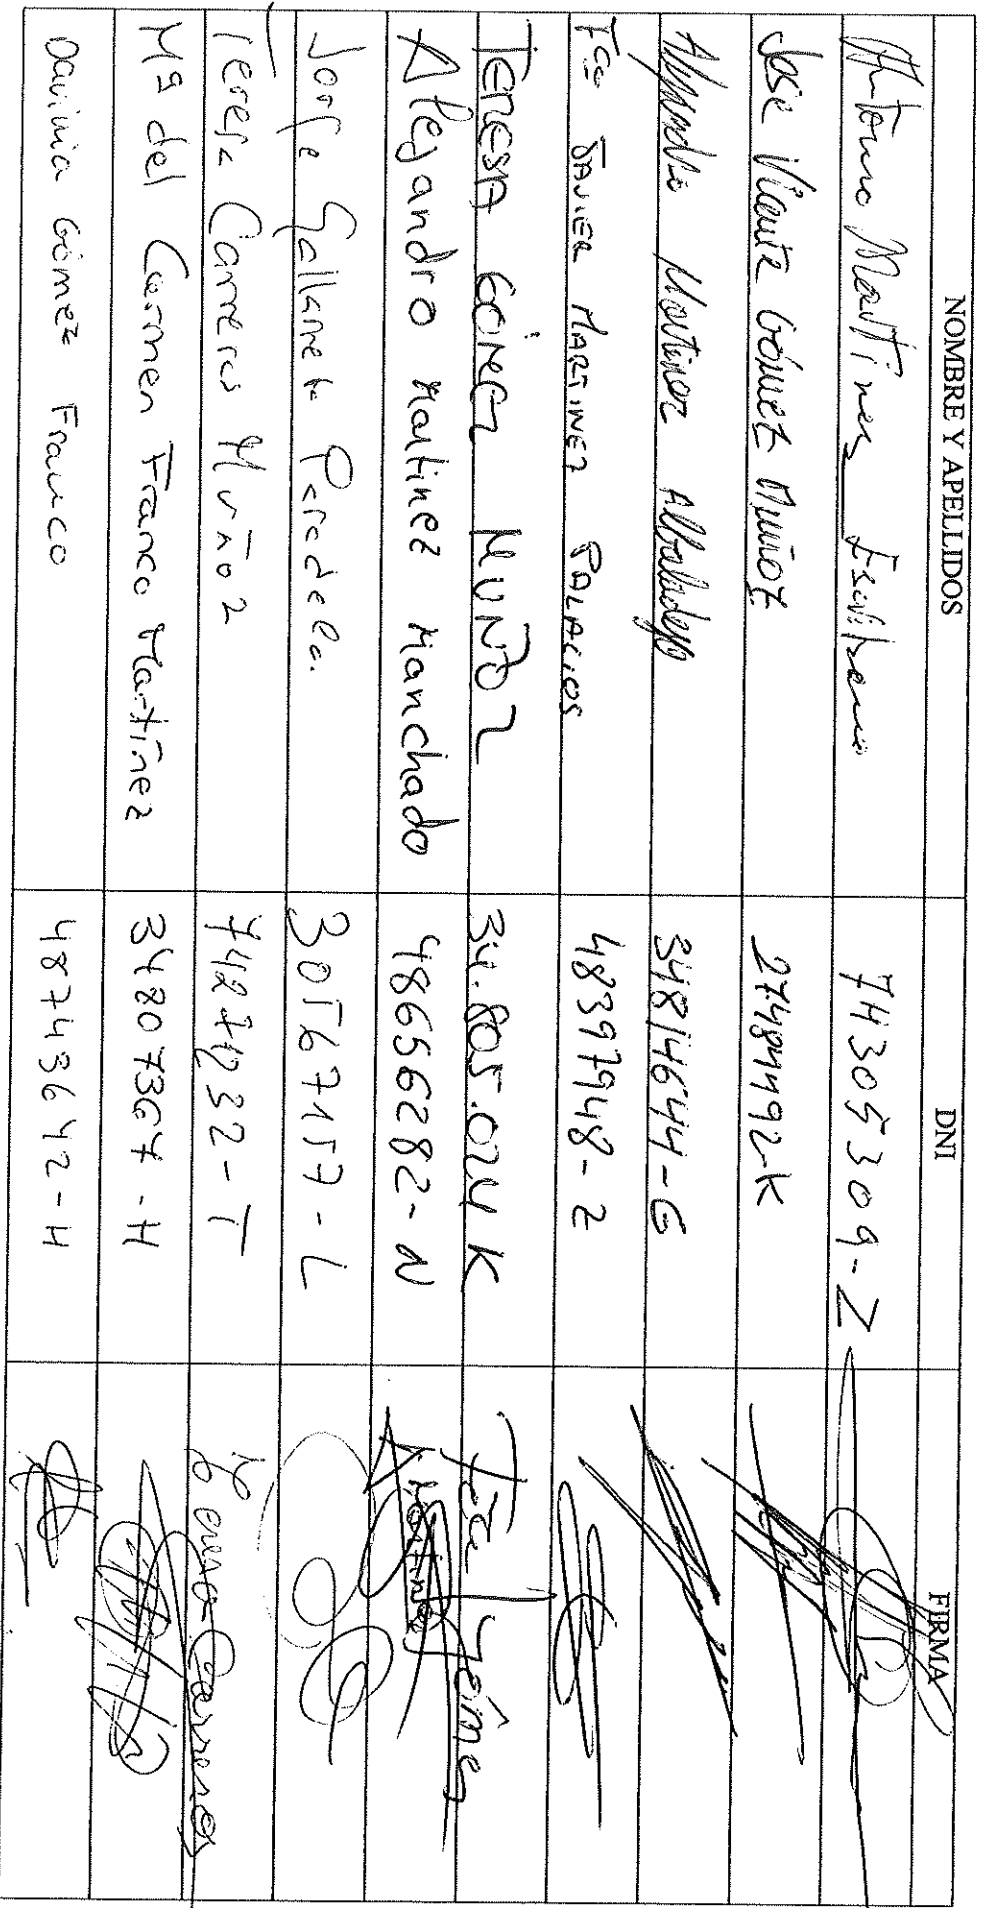 NOMBRE Y APELLIDOS DNI FIRMA
Antonio Martinez 74305309-Z
José Vicente Gómez Muñoz 27484492-K
Alejandro Martinez Albaladejo 34814644-G
Fco JAVIER MARTINEZ PALACIOS 48397948-Z
TERESA GÓMEZ MUÑOZ 34.805.024 K Tere Gómez
Alejandro Martinez Manchado 48656282-N A. Martinez
Jorge Gallarreta 30567157-L
Teresa Carreras Muñoz 74274232-T Carreras
Mª del Carmen Franco Martínez 34807367-H
Davinia Gómez Franco 48743642-H